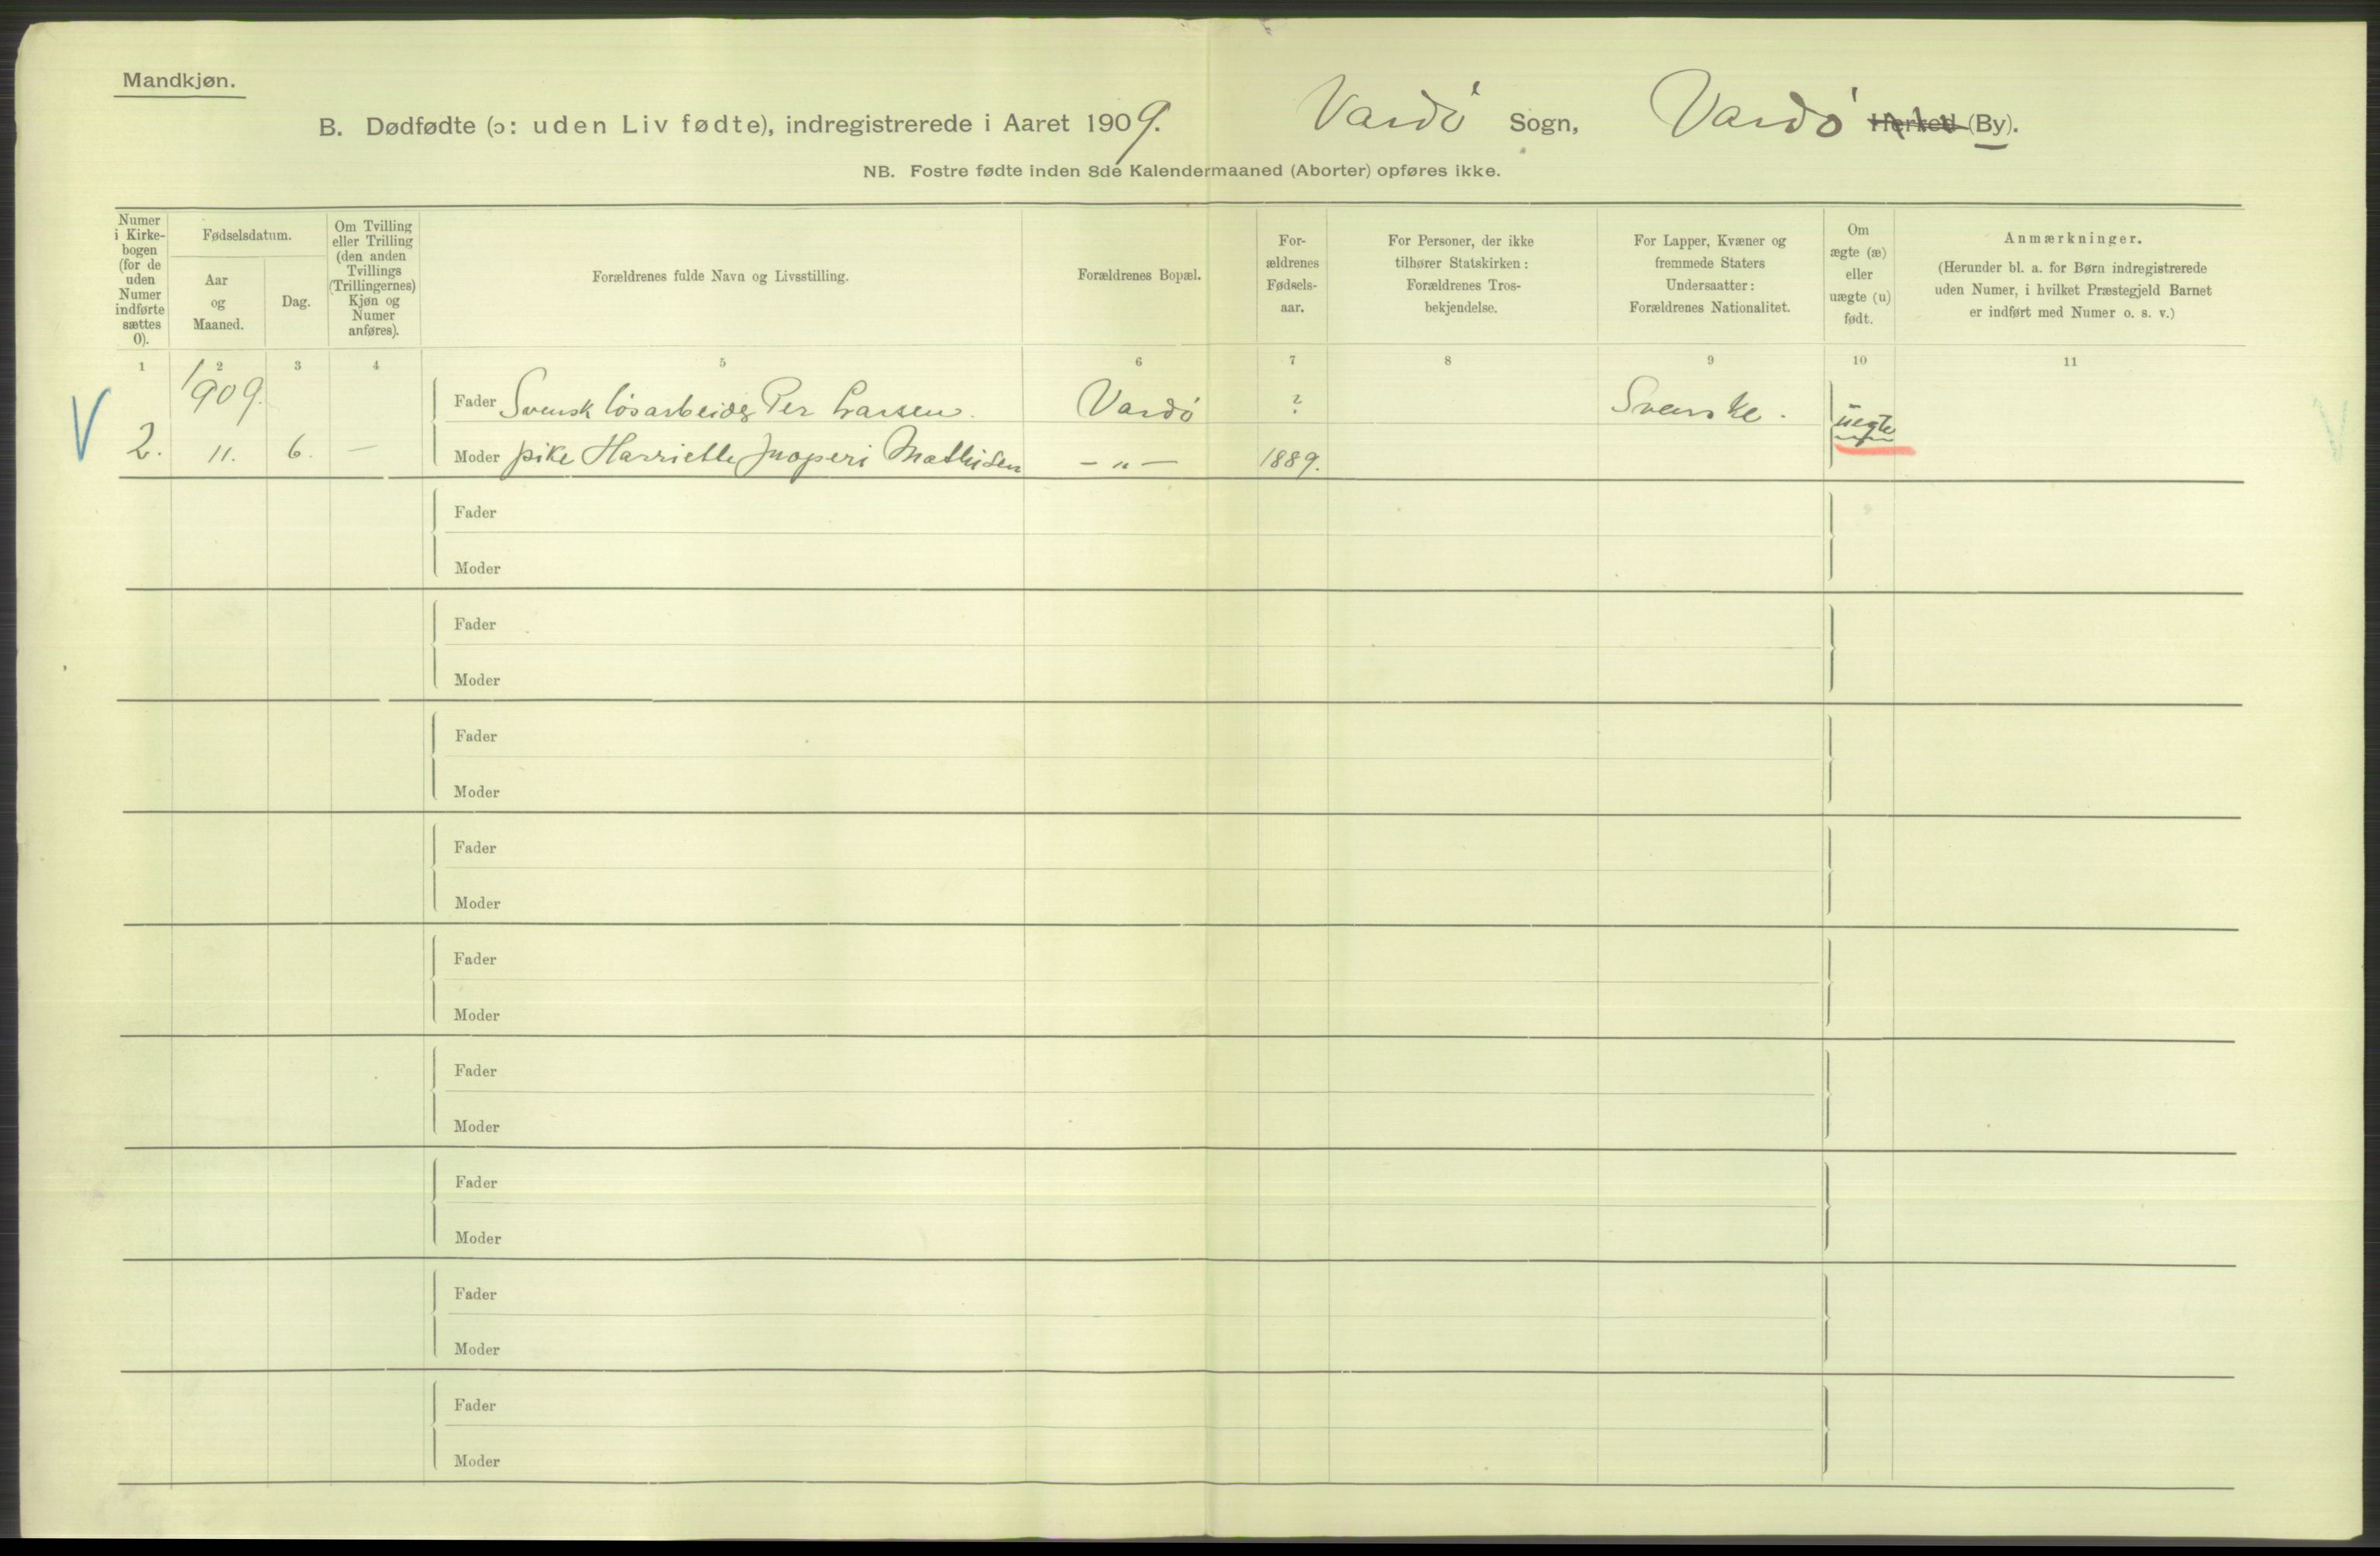 Mandkjøn.
B. Dødfødte (ɔ: uden Liv fødte), indregistrerede i Aaret 1909. Vardö Sogn, Vardö Herked (By).
NB. Fostre fødte inden 8de Kalendermaaned (Aborter) opføres ikke.
Numer i Kirke-
bogen
(for de
uden
Numer
indførte
sættes
0).
Fødselsdatum.
Aar
og
Maaned.
Dag.
Om Tvilling
eller Trilling
(den anden
Tvillings
(Trillingernes)
Kjøn og
Numer
anføres).
Forældrenes fulde Navn og Livsstilling.
Forældrenes Bopæl.
For-
ældrenes
Fødsels-
aar.
For Personer, der ikke
tilhører Statskirken:
Forældrenes Tros-
bekjendelse.
For Lapper, Kvæner og
fremmede Staters
Undersaatter:
Forældrenes Nationalitet.
Om
ægte (æ)
eller
uægte (u)
født.
Anmærkninger.
(Herunder bl. a. for Børn indregistrerede
uden Numer, i hvilket Præstegjeld Barnet
er indført med Numer o. s. v.)
1 2 3 4 5 6 7 8 9 10 11
1909.
Fader Svensk løsarbeider Per Larsen. Vardö ? Svenske. uegte
V 2. 11. 6. — Moder pike Harriette Mathisen – „ – 1889.
Fader
Moder
Fader
Moder
Fader
Moder
Fader
Moder
Fader
Moder
Fader
Moder
Fader
Moder
Fader
Moder
Fader
Moder